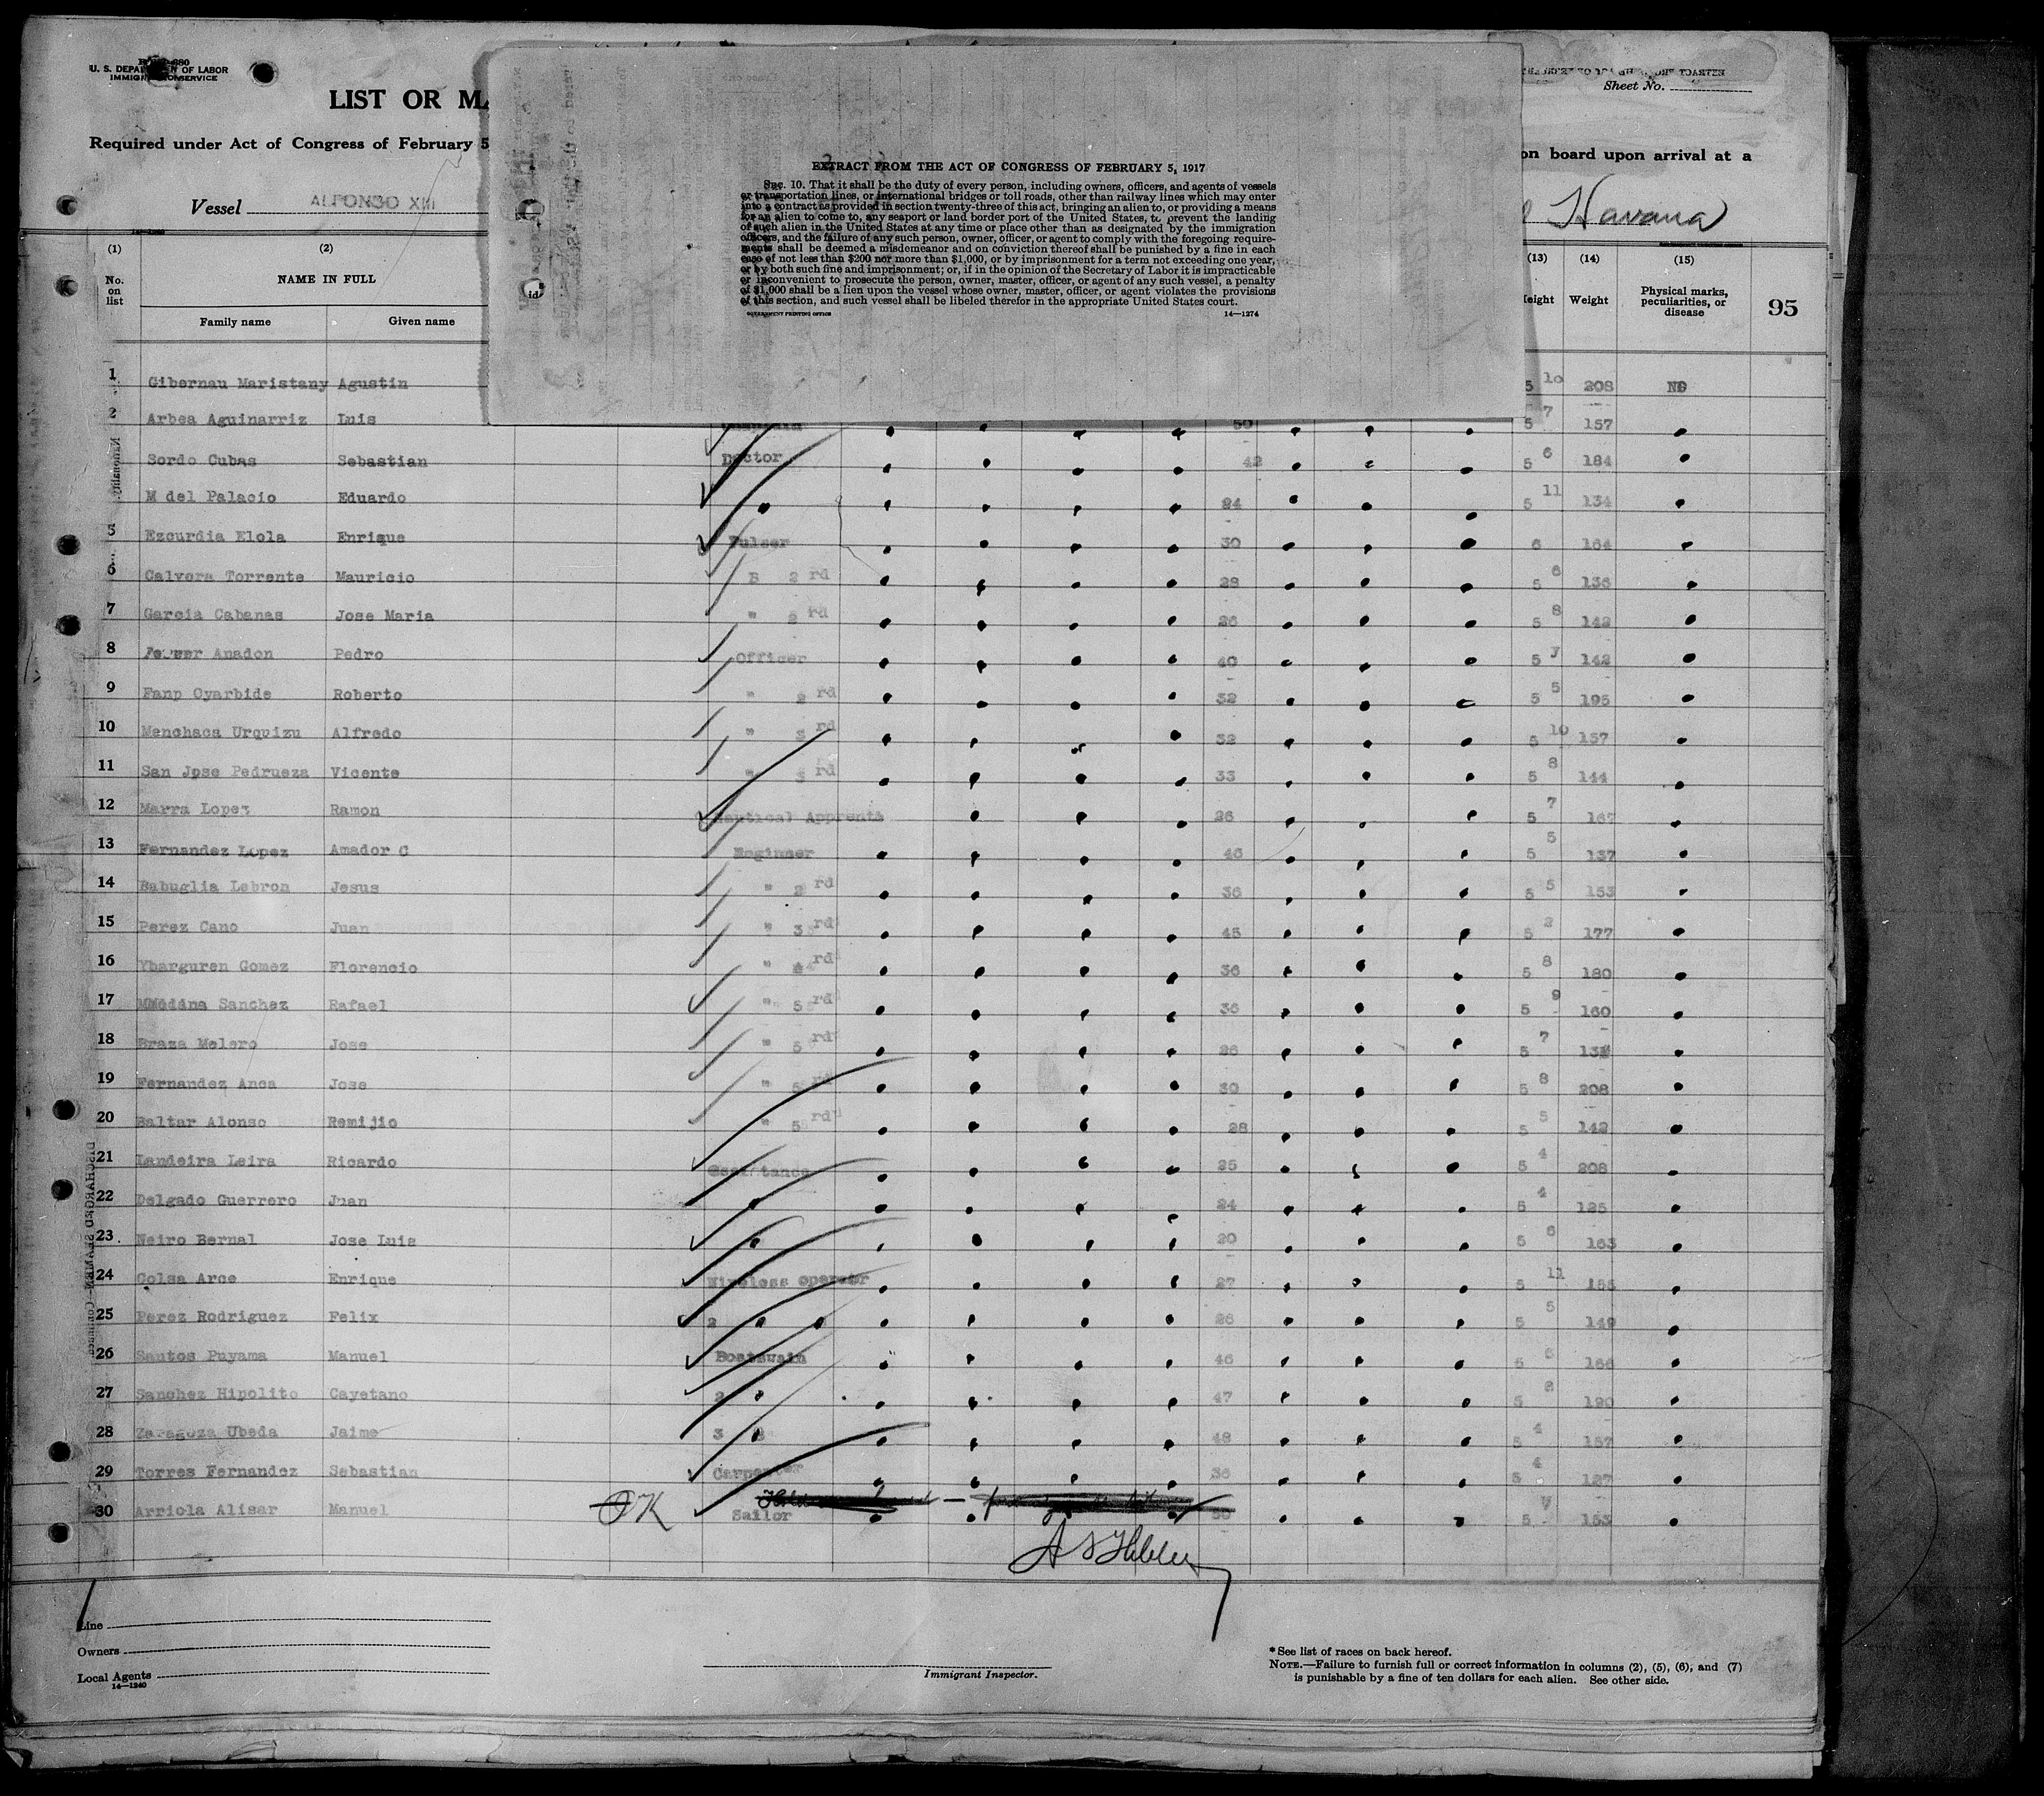 U. S. DEPA N OF LABOR
IMMIG SERVICE
LIST OR MA
Required under Act of Congress of February 5
on board upon arrival at a
Sheet No.
Vessel ALFONSO XIII
Havana
EXTRACT FROM THE ACT OF CONGRESS OF FEBRUARY 5, 1917
SEC. 10. That it shall be the duty of every person, including owners, officers, and agents of vessels
or transportation lines, or international bridges or toll roads, other than railway lines which may enter
into a contract as provided in section twenty-three of this act, bringing an alien to, or providing a means
for an alien to come to, any seaport or land border port of the United States, to prevent the landing
of such alien in the United States at any time or place other than as designated by the immigration
officers, and the failure of any such person, owner, officer, or agent to comply with the foregoing require-
ments shall be deemed a misdemeanor and on conviction thereof shall be punished by a fine in each
case of not less than $200 nor more than $1,000, or by imprisonment for a term not exceeding one year,
or by both such fine and imprisonment; or, if in the opinion of the Secretary of Labor it is impracticable
or inconvenient to prosecute the person, owner, master, officer, or agent of any such vessel, a penalty
of $1,000 shall be a lien upon the vessel whose owner, master, officer, or agent violates the provisions
of this section, and such vessel shall be libeled therefor in the appropriate United States court.
GOVERNMENT PRINTING OFFICE 14—1274
(1) (2) (13) (14) (15)
No. on list NAME IN FULL eight Weight Physical marks, peculiarities, or disease 95
Family name Given name
1 Gibernau Maristany Agustin 5 10 208 NO
2 Arbea Aguinarriz Luis 50 5 7 157
Sordo Cubas Sebastian Doctor 42 5 6 184
M del Palacio Eduardo 24 5 11 134
5 Ezcurdia Elola Enrique Pulser 30 6 164
6 Calvera Torrente Mauricio 2 rd 28 5 6 136
7 Garcia Cabanas Jose Maria " 2 rd 26 5 8 142
8 Anadon Pedro Officer 40 5 7 142
9 Fanp Oyarbide Roberto " 2 rd 32 5 5 195
10 Menchaca Urquizu Alfredo " 3 rd 32 5 10 157
11 San Jose Pedrueza Vicente " 3 rd 33 5 8 144
12 Marra Lopez Ramon Nautical Apprenta 26 5 7 167
13 Fernandez Lopez Amador C Enginner 45 5 5 137
14 Babuglia Lebron Jesus " 2 rd 36 5 5 153
15 Perez Cano Juan " 3 rd 45 5 2 177
16 Ybarguren Gomez Florencio " 4 rd 36 5 8 180
17 Medina Sanchez Rafael " 5 rd 36 5 9 160
18 Braza Melero Jose " 5 rd 26 5 7
19 Fernandez Anca Jose " 5 rd 30 5 8 208
20 Baltar Alonso Remijio " 5 rd 28 5 5 142
21 Landeira Leira Ricardo 25 5 4 208
22 Delgado Guerrero Juan 24 5 4 125
23 Neiro Bernal Jose Luis 20 5 6 163
24 Colsa Arce Enrique Wireless operator 27 5 11 155
25 Perez Rodriguez Felix 2 26 5 5 149
26 Santos Puyama Manuel Boatswain 46 5 6 166
27 Sanchez Hipolito Cayetano 2 47 5 2 190
28 Zaragoza Ubeda Jaime 3 48 5 4 157
29 Torres Fernandez Sebastian Carpenter 36 5 4 127
30 Arriola Alisar Manuel OK Sailor 5 153
Line
Owners
Local Agents
14—1240
Immigrant Inspector.
* See list of races on back hereof.
NOTE.—Failure to furnish full or correct information in columns (2), (5), (6), and (7)
is punishable by a fine of ten dollars for each alien. See other side.